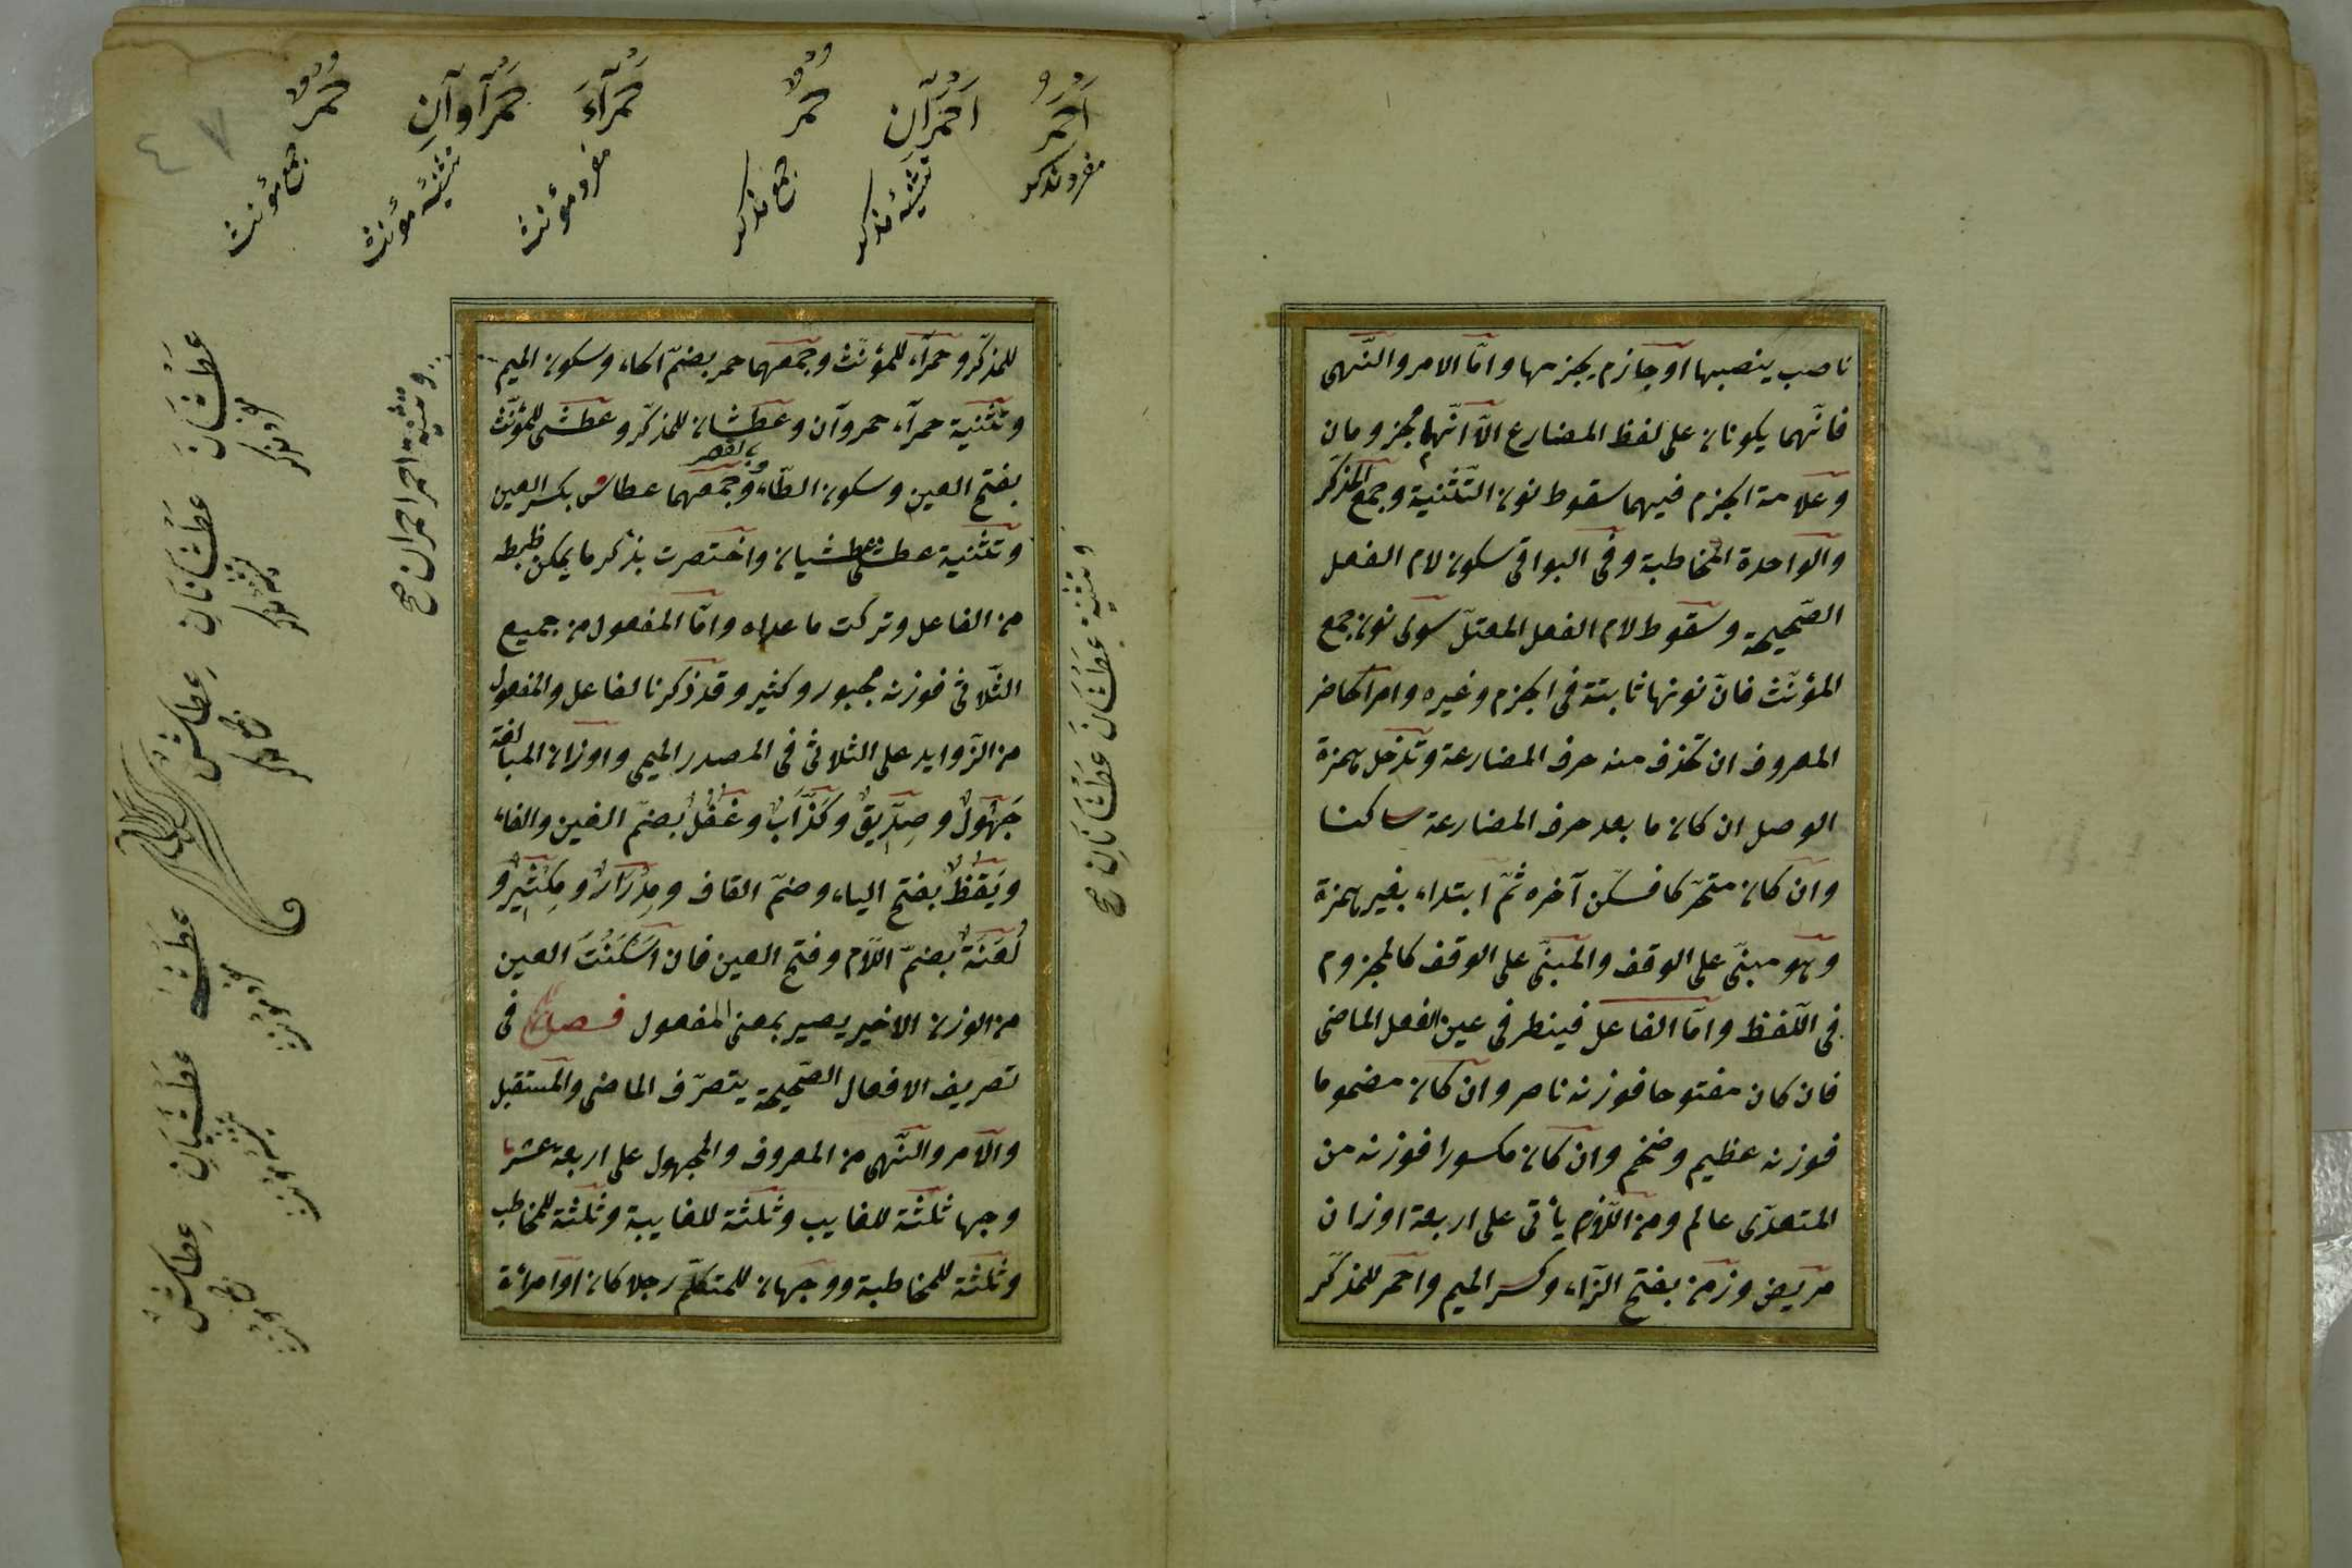 ناصب ينصبها او جازم يجزمها وامّا الامر والنّهى
فانّهما يكونان على لفظ المضارع الاّ انّهما مجزومان
وعلامة الجزم فيهما سقوط نون التّثنية وجمع المذكّر
والواحدة المخاطبة وفى البواقى سكون لام الفعل
الصّحيحة وسقوط لام الفعل المعتلّ سوى نون جمع
المؤنّث فانّ نونها ثابتة فى الجزم وغيره وامر الحاضر
المعروف ان تحذف منه حرف المضارعة وتدخل همزة
الوصل ان كان ما بعد حرف المضارعة ساكنا
وان كان متحرّكا فسكّن آخره ثمّ ابتداء بغير همزة
وهو مبنىّ على الوقف والمبنىّ على الوقف كالمجزوم
فى اللّفظ وامّا الفاعل فينظر فى عين الفعل الماضى
فان كان مفتوحا فوزنه ناصر وان كان مضموما
فوزنه عظيم وضخم وان كان مكسورا فوزنه من
المتعدّى عالم ومن اللّازم يأتى على اربعة اوزان
مريض وزمن بفتح الزّاء وكسر الميم واحمر للمذكّر
اَحْمَرُ مفرد مذكر
اَحْمَرَانِ تثنيۀ مذكر
حُمْرٌ جمع مذكر
حَمْرَآءُ مفرد مؤنث
حَمْرَآوَانِ تثنيۀ مؤنث
حُمْرٌ جمع مؤنث
٤٧
للمذكّر وحمرآء للمؤنّث وجمعهما حمر بضمّ الحاء وسكون الميم
وتثنية حمرآء حمروآن وعطشان للمذكّر وعطشى للمؤنّث
بفتح العين وسكون الطّاء وبالقصر وجمعهما عطاش بكسر العين
وتثنية عطشى عطشيان واختصرت بذكر ما يمكن ظبطه
من الفاعل وتركت ما عداه وامّا المفعول من جميع
الثّلاثى فوزنه مجبور وكثير وقد ذكرنا الفاعل والمفعول
من الزّوايد على الثلاثى فى المصدر الميمى واوزان المبالغة
جَهُولٌ وصِدِّيقٌ وكَذَّابٌ وغُفُلٌ بضمّ الغين والفاء
ويَقُظٌ بفتح الياء وضمّ القاف ومِدْرَارٌ ومِكْثِيرٌ و
لُعَنَةٌ بضمّ اللّام وفتح العين فان اَسْكَنْتَ العين
من الوزن الاخير يصير بمعنى المفعول فصل فى
تصريف الافعال الصّحيحة يتصرّف الماضى والمستقبل
والامر والنّهى من المعروف والمجهول على اربعة عشر
وجها ثلثة للغايب وثلثة للغايبة وثلثة للمخاطب
وثلثة للمخاطبة ووجهان للمتكلّم رجلا كان او امرأة
وتثنية احمر احمران صح
وتثنية عَطْشَانَ عَطْشَانَانِ صح
عَطْشَانَ مفرد مذكر
عَطْشَانَانِ تثنيه مذكر
عِطَاشٌ جمع مذكر
عَطْشَى مفرد مؤنث
عَطْشَيَانِ تثنيه مؤنث
عِطَاشٌ جمع مؤنث